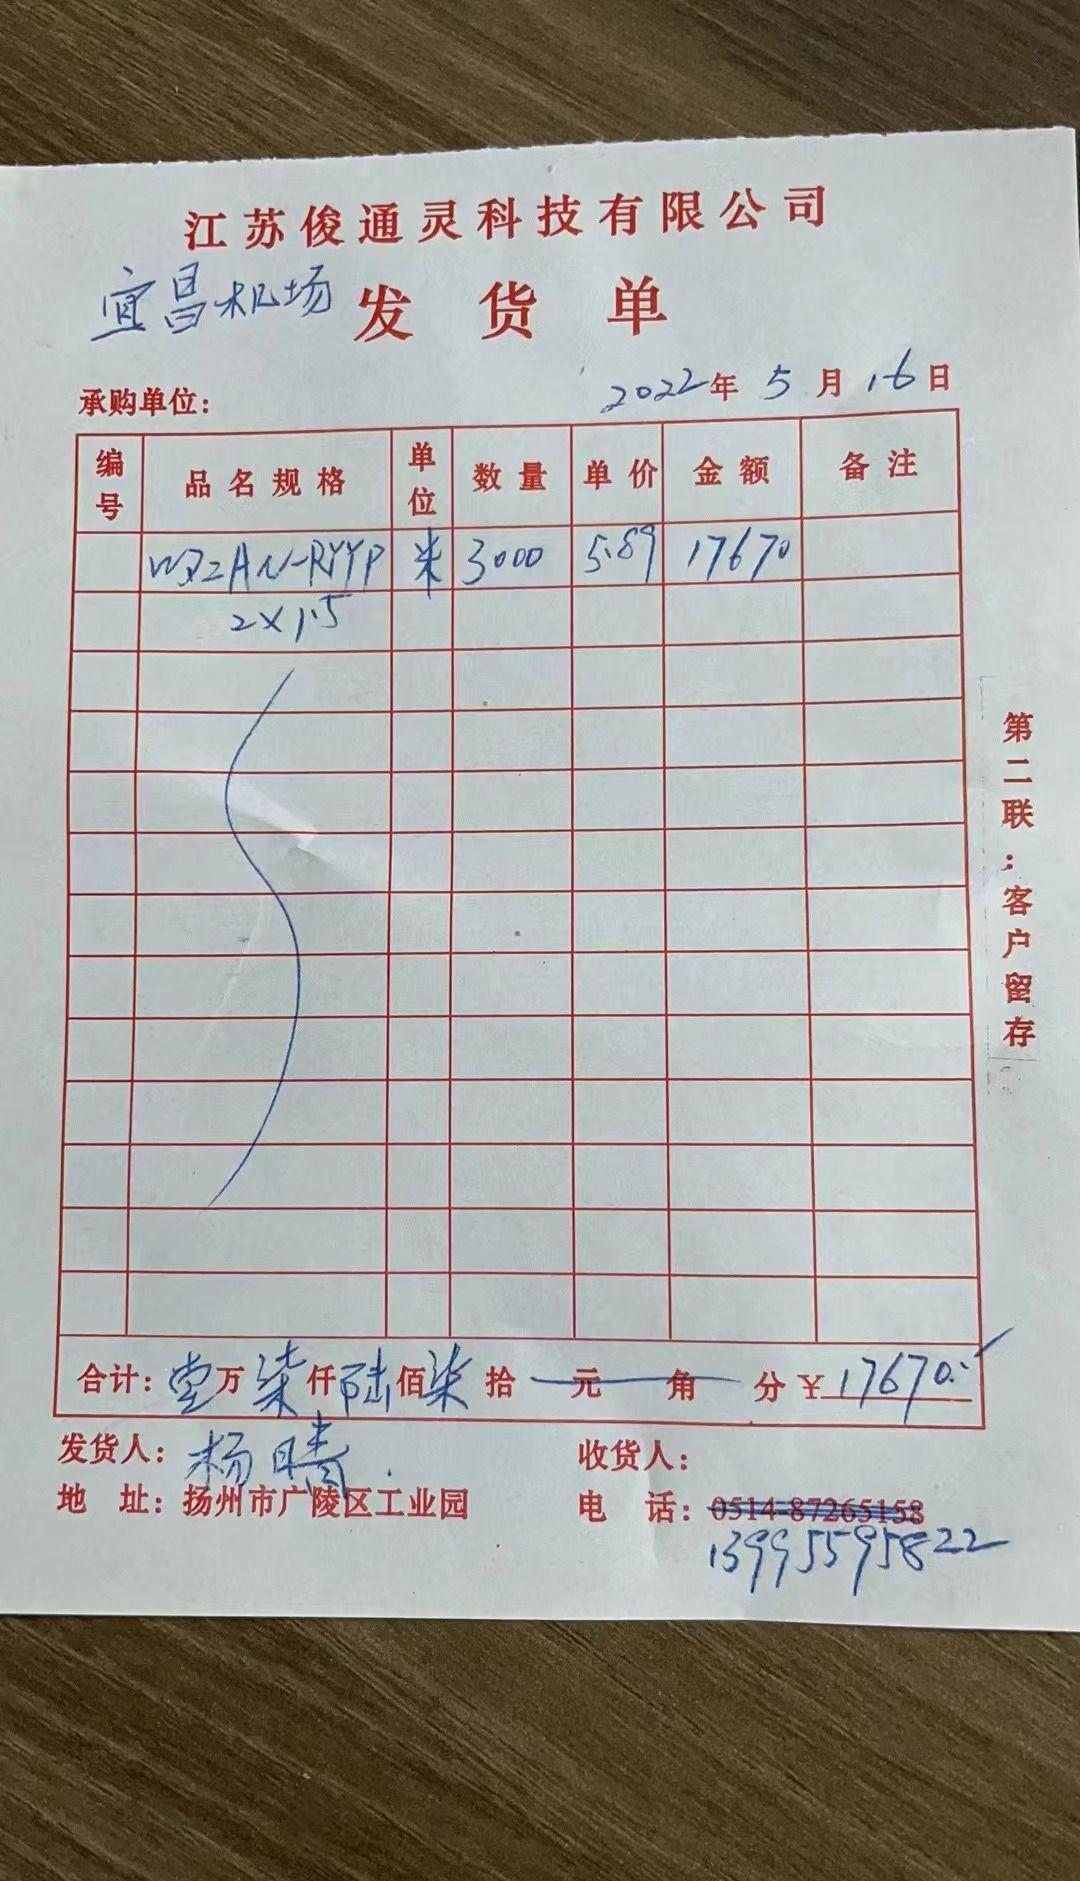 江苏俊通灵科技有限公司
宜昌机场 发货单
承购单位: 2022年5月16日
编号 品名规格 单位 数量 单价 金额 备注
WDZAN-RYYP 米 3000 5.89 17670
2×1.5
第二联:客户留存
合计: 壹万柒仟陆佰柒拾 元 角 分 ¥17670.
发货人: 杨晴 收货人:
地 址: 扬州市广陵区工业园 电 话: 0514-87265158
13995595822